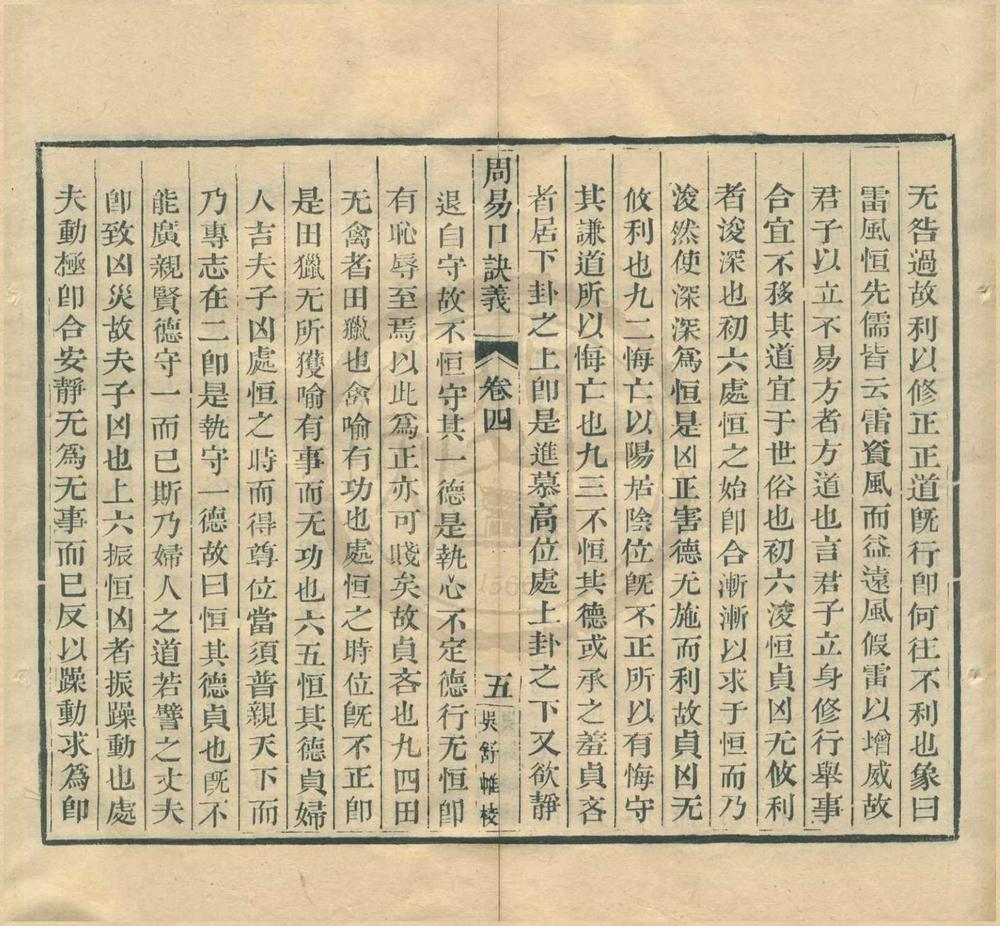 无咎過故利以修正正道旣行卽何往不利也象曰
雷風恒先儒皆云雷資風而益遠風假雷以增威故
君子以立不易方者方道也言君子立身修行舉事
合宜不移其道宜于世俗也初六浚恒貞凶无攸利
者浚深也初六處恒之始卽合漸漸以求于恒而乃
浚然使深深爲恒是凶正害德无施而利故貞凶无
攸利也九二悔亡以陽居陰位旣不正所以有悔守
其謙道所以悔亡也九三不恒其德或承之羞貞吝
者居下卦之上卽是進慕高位處上卦之下又欲靜
周易口訣義 卷四 五 吳舒帷校
退自守故不恒守其一德是執心不定德行无恒卽
有恥辱至焉以此爲正亦可賤矣故貞吝也九四田
无禽者田獵也禽喻有功也處恒之時位旣不正卽
是田獵无所獲喻有事而无功也六五恒其德貞婦
人吉夫子凶處恒之時而得尊位當須普親天下而
乃專志在二卽是執守一德故曰恒其德貞也旣不
能廣親賢德守一而已斯乃婦人之道若譬之丈夫
卽致凶災故夫子凶也上六振恒凶者振躁動也處
夫動極卽合安靜无爲无事而已反以躁動求爲卽